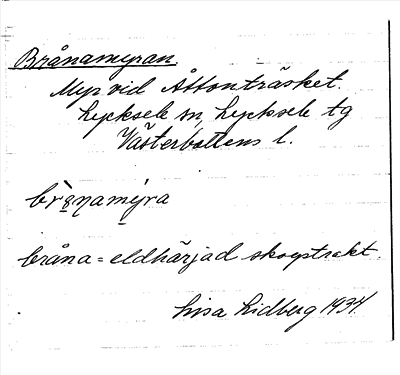 Brånamyran.
Myr vid Åttonträsket.
Lycksele sn, Lycksele tg
Västerbottens l.
brånamyra
bråna = eldhärjad skogstrakt.
Lisa Lidberg 1934.